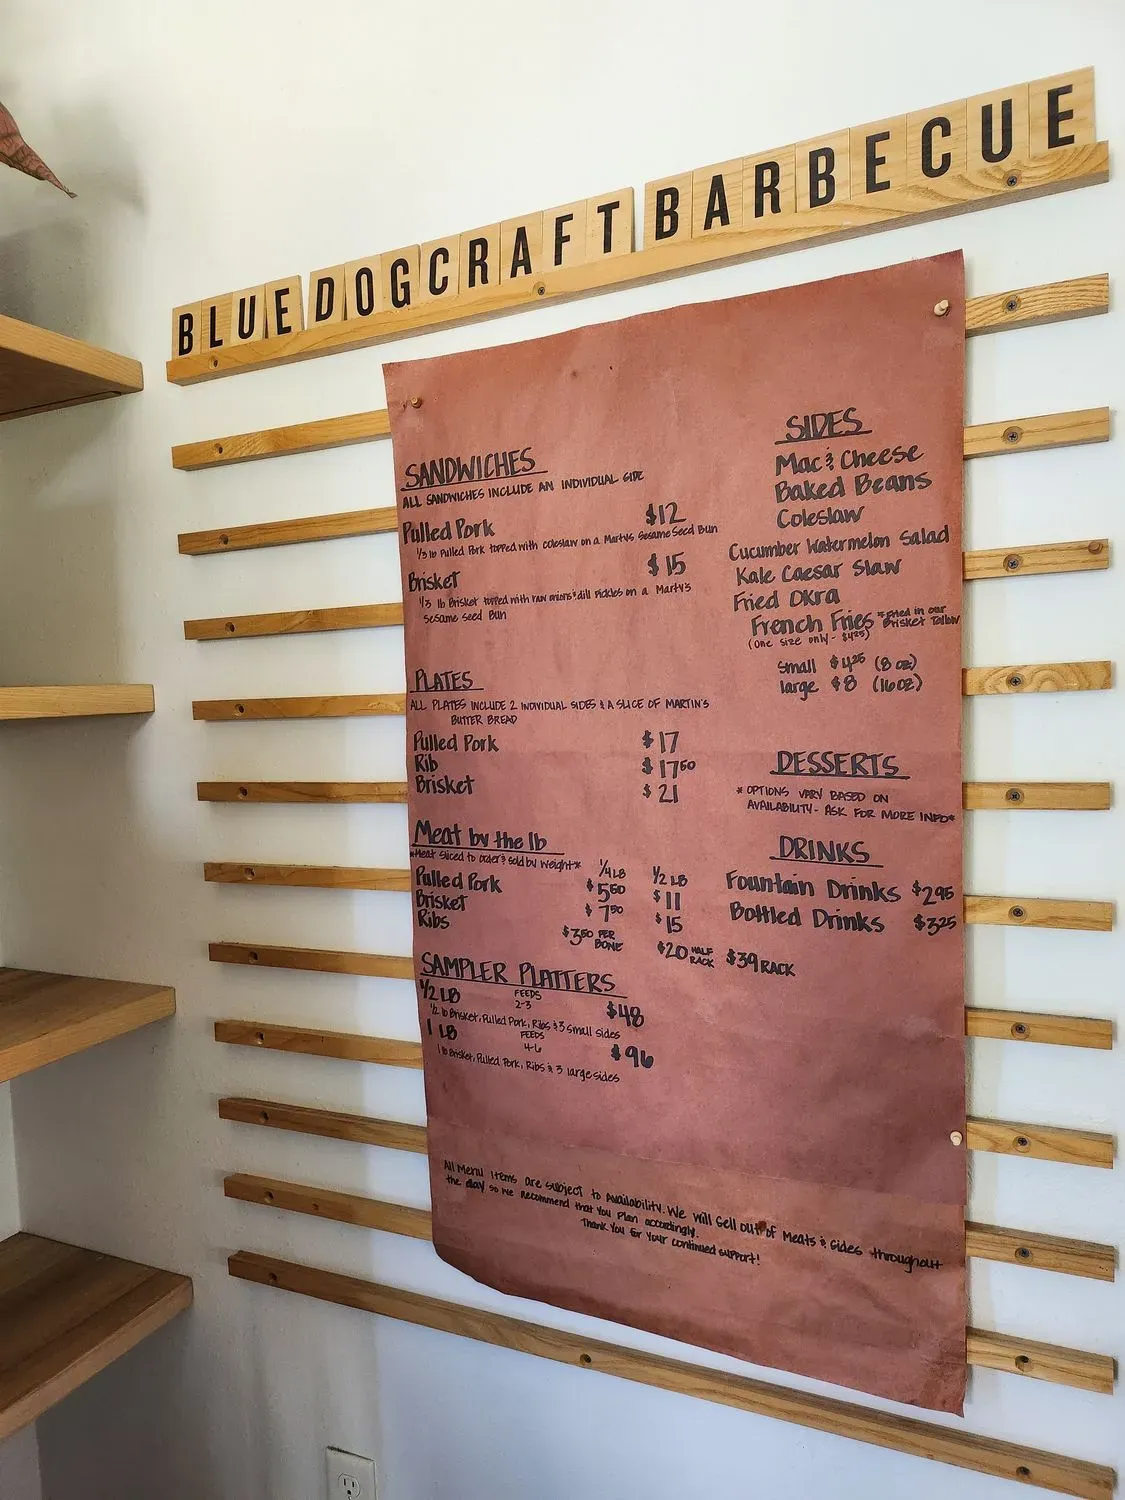 BLUE DOG CRAFT BARBECUE
SANDWICHES
ALL SANDWICHES INCLUDE AN INDIVIDUAL SIDE
Pulled Pork $12
1/3 lb Pulled Pork topped with coleslaw on a Martys Sesame Seed Bun
Brisket $15
1/3 lb Brisket topped with raw onions & dill pickles on a Marty's
Sesame Seed Bun
PLATES
ALL PLATES INCLUDE 2 INDIVIDUAL SIDES & A SLICE OF MARTIN'S
BUTTER BREAD
Pulled Pork $17
Rib $1750
Brisket $21
Meat by the lb
*Meat sliced to order & sold by weight*
1/4 LB 1/2 LB
Pulled Pork $550 $11
Brisket $750 $15
Ribs $350 PER BONE $20 HALF RACK $39 RACK
SAMPLER PLATTERS
1/2 LB FEEDS 2-3 $48
1/2 lb Brisket, Pulled Pork, Ribs & 3 small sides
1 LB FEEDS 4-6 $96
1 lb Brisket, Pulled Pork, Ribs & 3 large sides
SIDES
Mac & Cheese
Baked Beans
Coleslaw
Cucumber Watermelon Salad
Kale Caesar Slaw
Fried Okra
French Fries *Fried in our Brisket Tallow
(One size only - $425)
small $425 (8 oz)
large $8 (16 oz)
DESSERTS
* OPTIONS VARY BASED ON
AVAILABILITY - ASK FOR MORE INFO*
DRINKS
Fountain Drinks $295
Bottled Drinks $325
All Menu Items are subject to Availability. We will sell out of Meats & Sides throughout
the day so we recommend that you plan accordingly.
Thank you for your continued support!